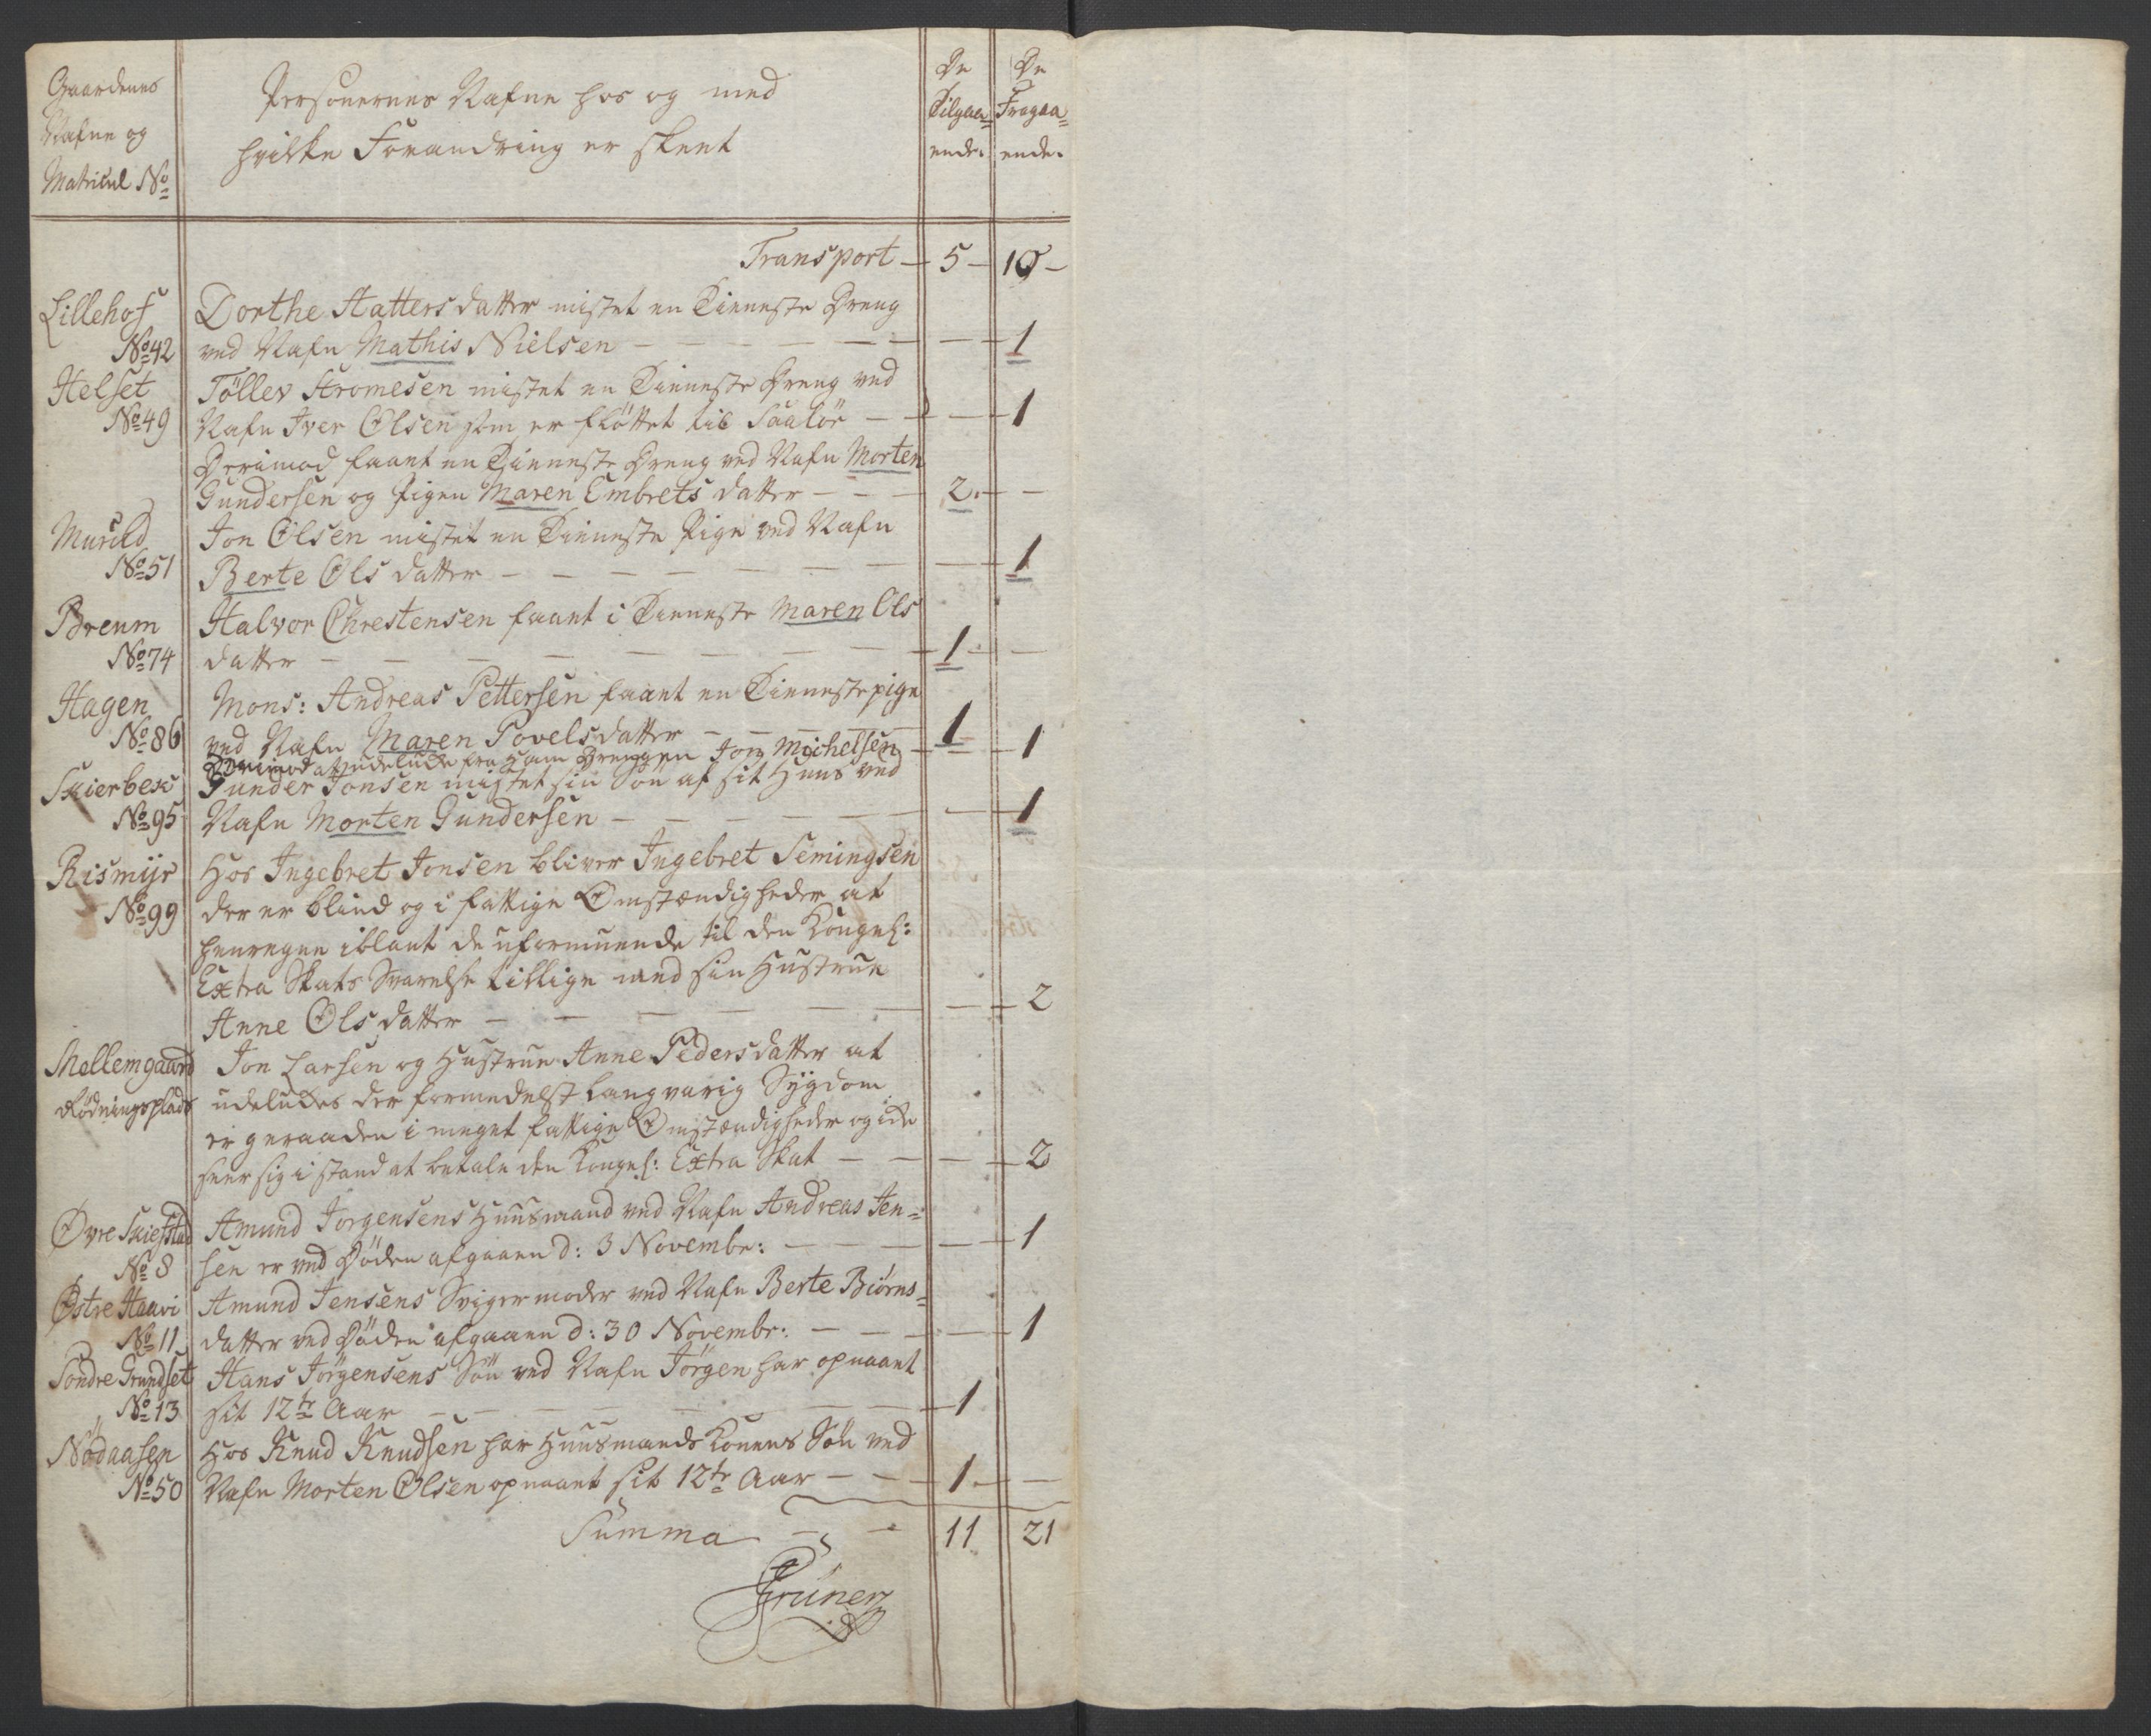 Gaardenes Nafne og Matricul No
Personernes Nafne hos og med
hvilke Forandring er skeet
De Tilgaa=ende.
De Fragaa=ende.
Transport — 5 — 10 —
Lillehof Dorthe Hattersdatter mistet en Tieneste Dreng
No 42 ved Nafn Mathis Nielsen — — 1
Helset Töllev Stromesen mistet en Tieneste Dreng ved
No 49 Nafn Iver Olsen som er fløttet til Saalør — — 1
Derimod faaet en Tieneste Dreng ved Nafn Morten
Gundersen og Pigen Maren Embrets datter — 2. —
Murud Jon Olsen mistet en Tieneste Pige ved Nafn
No 51 Berte Ols datter — — 1
Breum Halvor Chrestensen faaet i Tieneste Maren Ols
No 74 datter — 1 —
Hagen Mons: Andreas Pettersen faaet en Tieneste pige
No 86 ved Nafn Maren Povels datter — 1
Derimod at udelukke fra ham Drengen Jon Michelsen — 1
Skierbek Gunder Jonsen mistet sin Søn af sit Huus ved
No 95 Nafn Morten Gundersen — — 1
Rismijr Hos Ingebret Jonsen bliver Ingebret Semingsen
No 99 der er blind og i fattige Omstændigheder at
henregne iblant de uformuende til den Kongel:
Extra Skats Svarelse tillige med sin Hustrue
Anne Ols datter — — 2
Mellemgaard Jon Larsen og Hustrue Anne Peders datter at
Rødningsplads udelukes der formedelst langvarig Sygdom
er geraaden i meget fattige Omstændigheder og ike
seer sig i stand at betale den Kongel: Extra Skat — — 2
Øvre Skiefstad Amund Jorgensens Huusmand ved Nafn Andreas Jen=
No 8 sen er ved Døden afgaaen d: 3 Novembr: — — 1
Østre Haavi Amund Jensens Svigermoder ved Nafn Berte Biørns=
No 11 datter ved Døden afgaaen d: 30 Novembr: — — 1
Søndre Grundset Hans Jörgensens Søn ved Nafn Jörgen har opnaaet
No 13 sit 12te Aar — 1
Nödaasen Hos Knud Knudsen har Huusmands Konens Søn ved
No 50 Nafn Morten Olsen opnaaet sit 12te Aar — 1. —
Summa — 11 21
Grüner